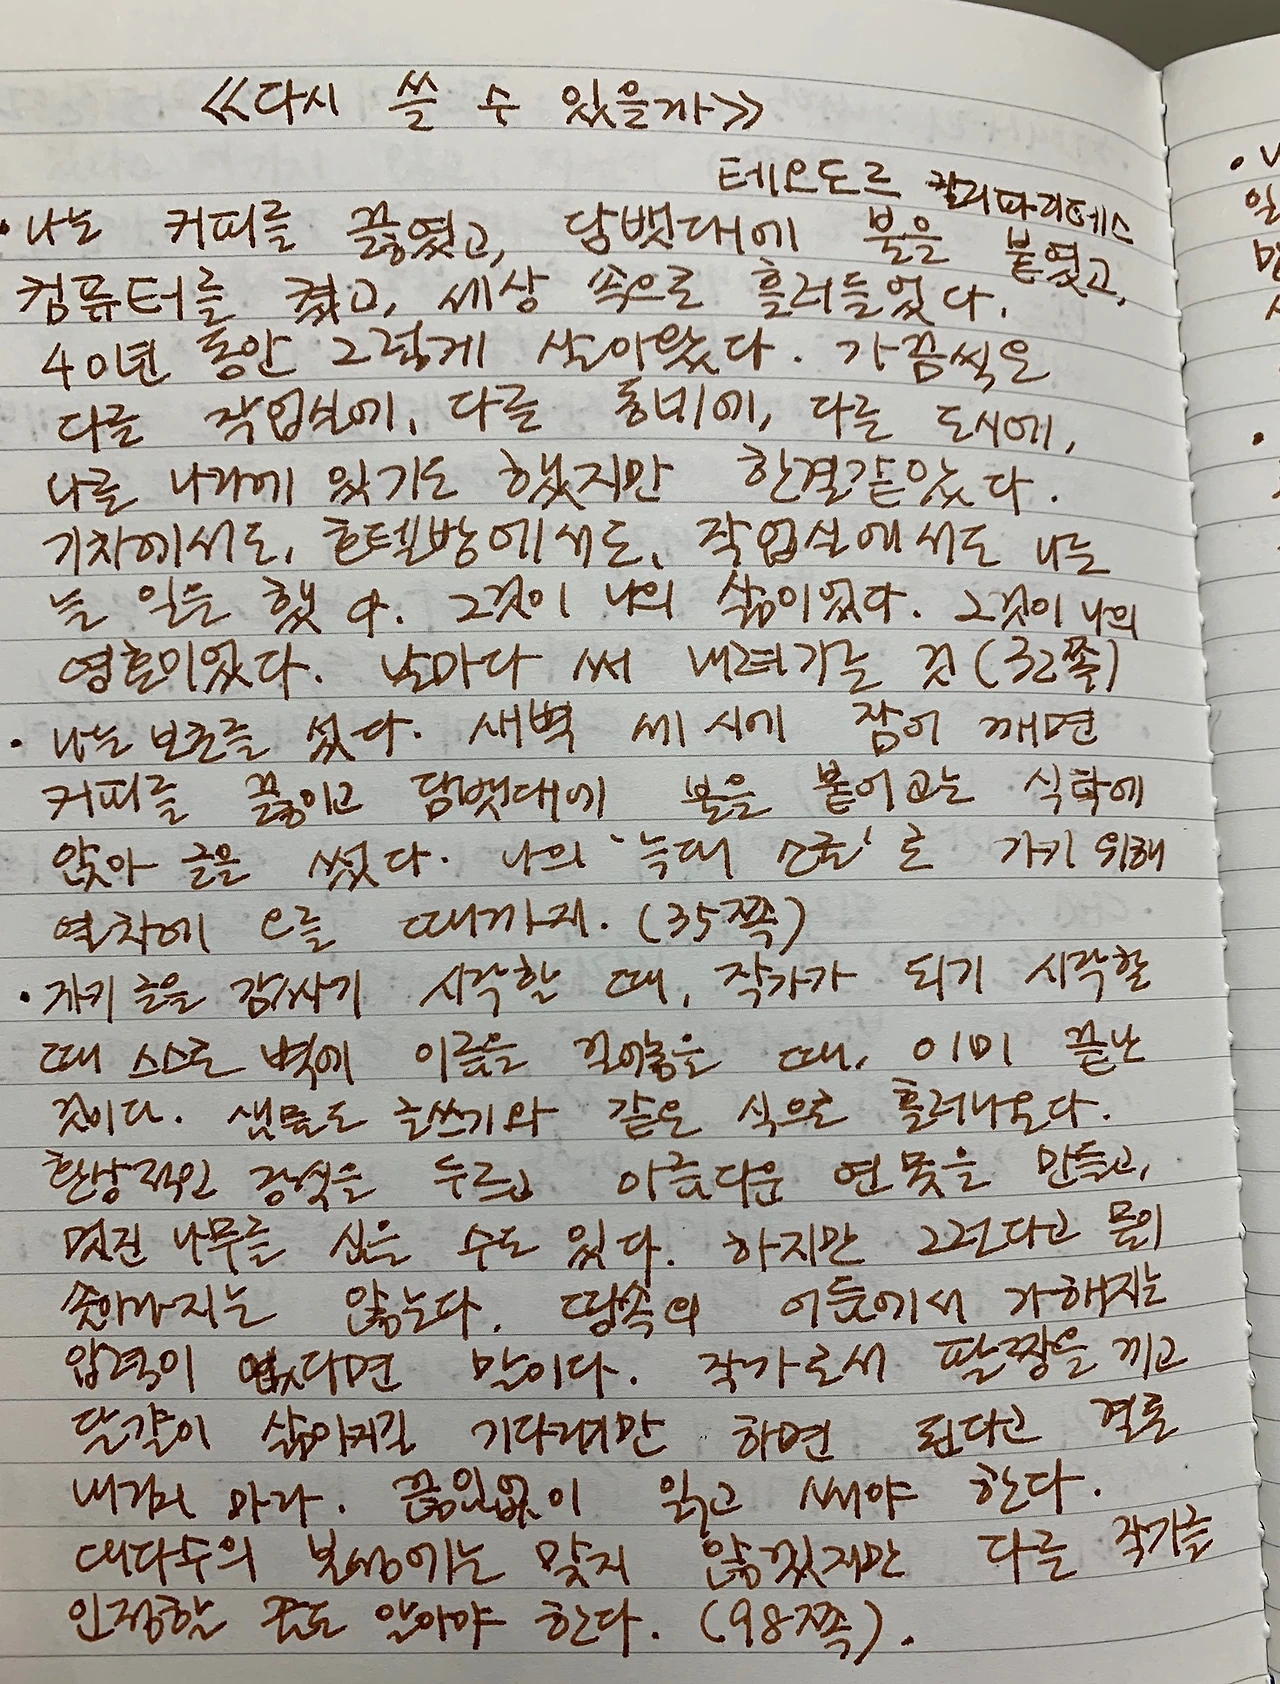 《다시 쓸 수 있을까》
테오도르 칼리파티데스
· 나는 커피를 끓였고, 담뱃대에 불을 붙였고,
컴퓨터를 켰고, 세상 속으로 흘러들었다.
40년 동안 그렇게 살아왔다. 가끔씩은
다른 작업실에, 다른 동네에, 다른 도시에,
다른 나라에 있기도 했지만 한결같았다.
기차에서도, 호텔방에서도, 작업실에서도 나는
늘 일을 했다. 그것이 나의 삶이었다. 그것이 나의
영혼이었다. 날마다 써 내려가는 것 (32쪽)
· 나는 보온을 썼다. 새벽 세 시에 잠이 깨면
커피를 끓이고 담뱃대에 불을 붙이고는 식탁에
앉아 글을 썼다. 나의 '늑대 소굴'로 가기 위해
열차에 오를 때까지. (35쪽)
· 자기 글을 감싸기 시작할 때, 작가가 되기 시작할
때 스스로 벽에 이름을 걸어놓을 때, 이미 끝난
것이다. 샘물도 글쓰기와 같은 식으로 흘러나온다.
환상적인 장식을 두르고 아름다운 연못을 만들고,
멋진 나무를 심을 수도 있다. 하지만 그런다고 물이
솟아나지는 않는다. 땅속의 어둠에서 가해지는
압력이 없다면 말이다. 작가로서 팔짱을 끼고
달걀이 삶아지길 기다리기만 하면 된다고 결론
내리지 마라. 끊임없이 읽고 써야 한다.
대다수의 본성에는 맞지 않겠지만 다른 작가를
인정할 줄도 알아야 한다. (98쪽).